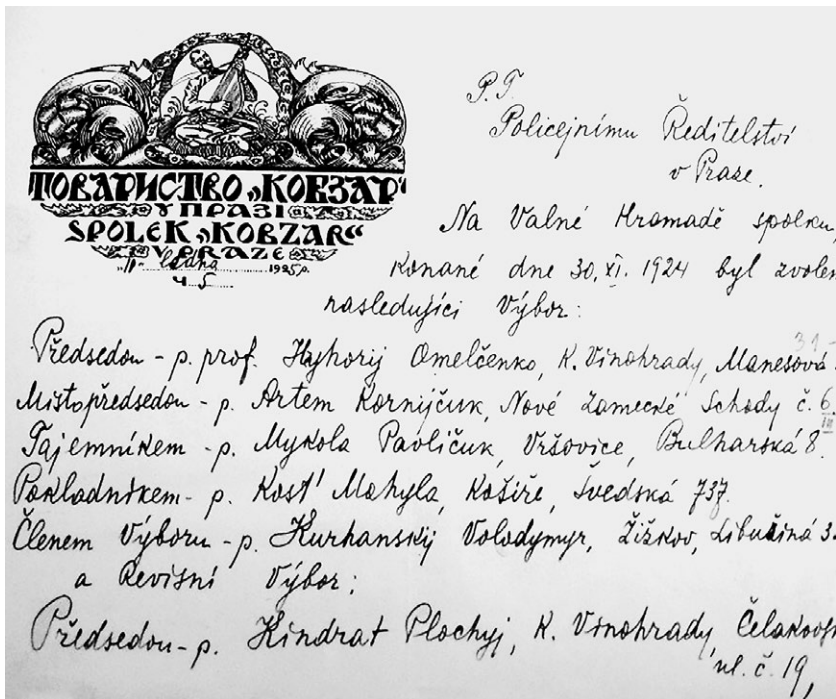 ТОВАРИСТВО „КОБЗАР“
У ПРАЗІ
SPOLEK „KOBZAR“
V PRAZE
ledna 1925 р.
Ч. 5
P.T.
Policejnímu Ředitelství
v Praze.
Na Valné Hromadě spolku,
konané dne 30. XI. 1924 byl zvolen
nasledující Výbor:
Předsedou - p. prof. Hyhorij Omelčenko, K. Vinohrady, Manesová
Místopředsedou - p. Artem Kornijčuk, Nové Zamecké Schody č. 6
Tajemníkem - p. Mykola Pavličuk, Vršovice, Bulharská 8.
Pokladníkem - p. Kosť Mohyla, Košíře, Švedská 737.
Členem Výboru - p. Kurhanskij Volodymyr, Žižkov, Libušiná 3
a Revisní Výbor:
Předsedou - p. Kindrat Plochyj, K. Vinohrady,
ul. č. 19,